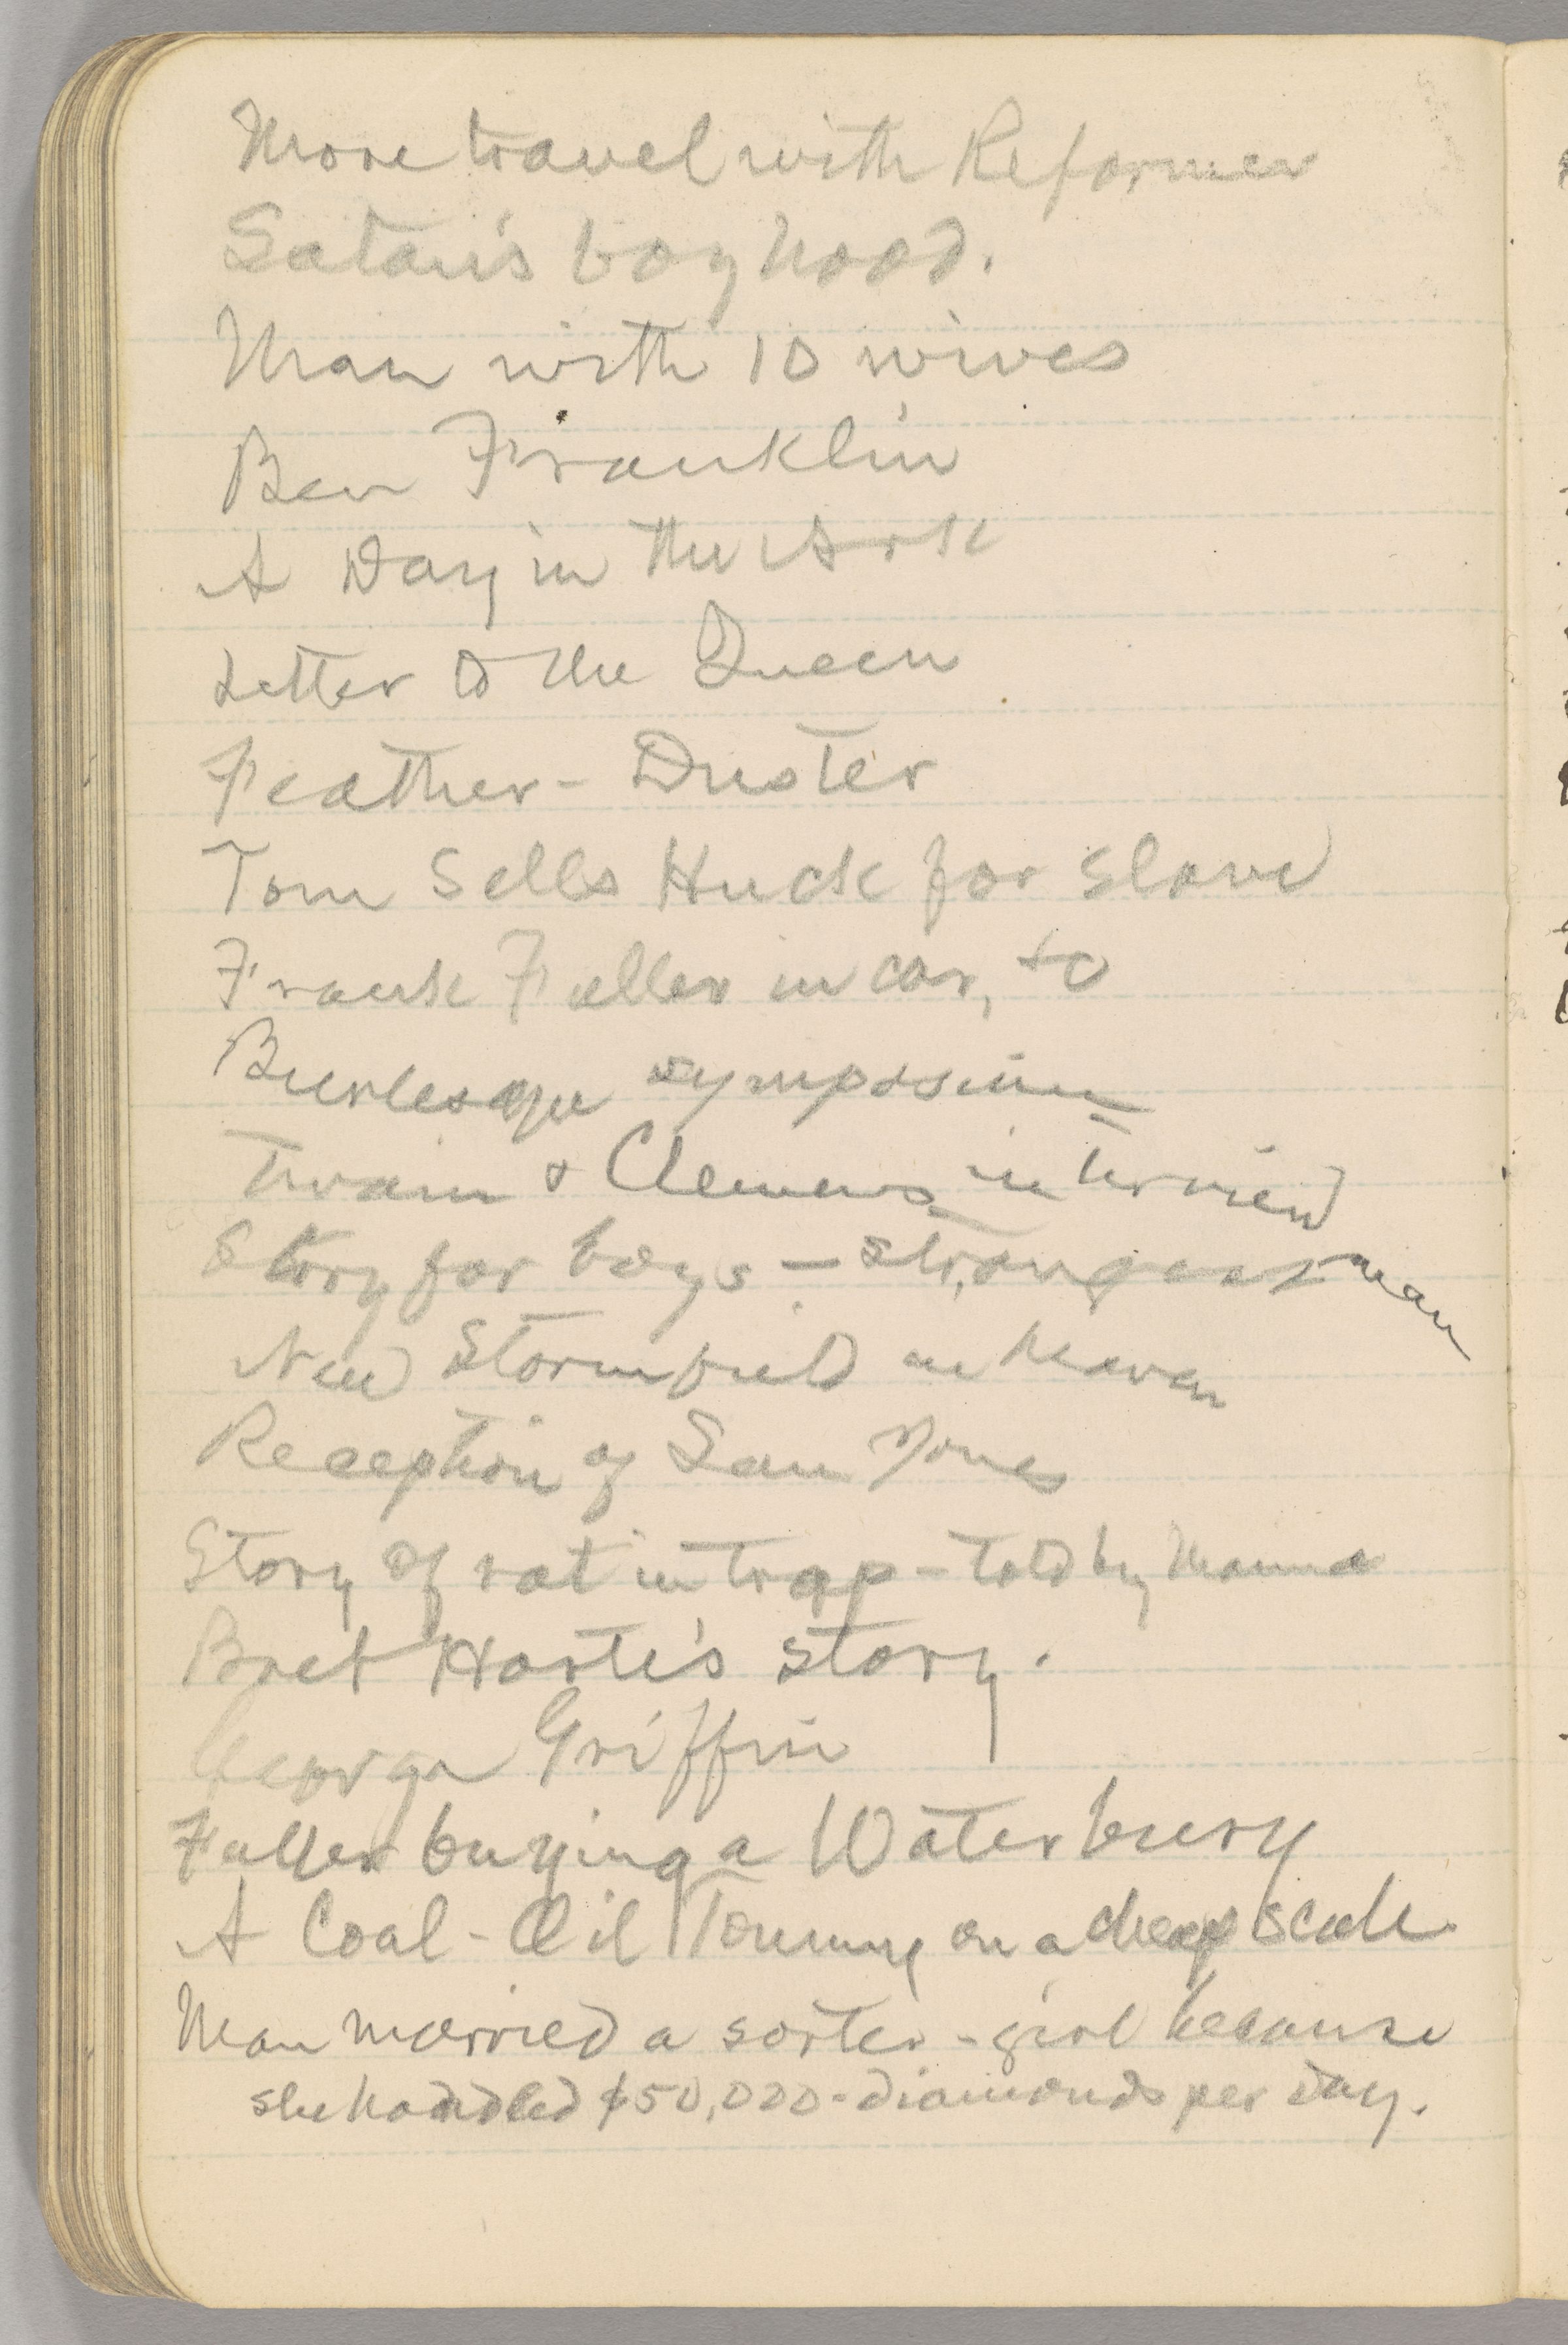 More travel with Reformer
Satan's boyhood.
Man with 10 wives
Ben Franklin
A Day in the Ark
Letter to the Queen
Feather-Duster
Tom sells Huck for slave
Frank Fuller in car, to
Burlesque symposium
Twain & Clemens interview
Story for boys — strongest man
New Stormfield in heaven
Reception of Sam Jones
Story of rat in trap - told by
Bret Harte's story.
George Griffin
Fuller buying a Waterbury
A Coal-Oil Tommy on a cheap scale.
Man married a sorter-girl because
she handled $50,000-diamonds per day.